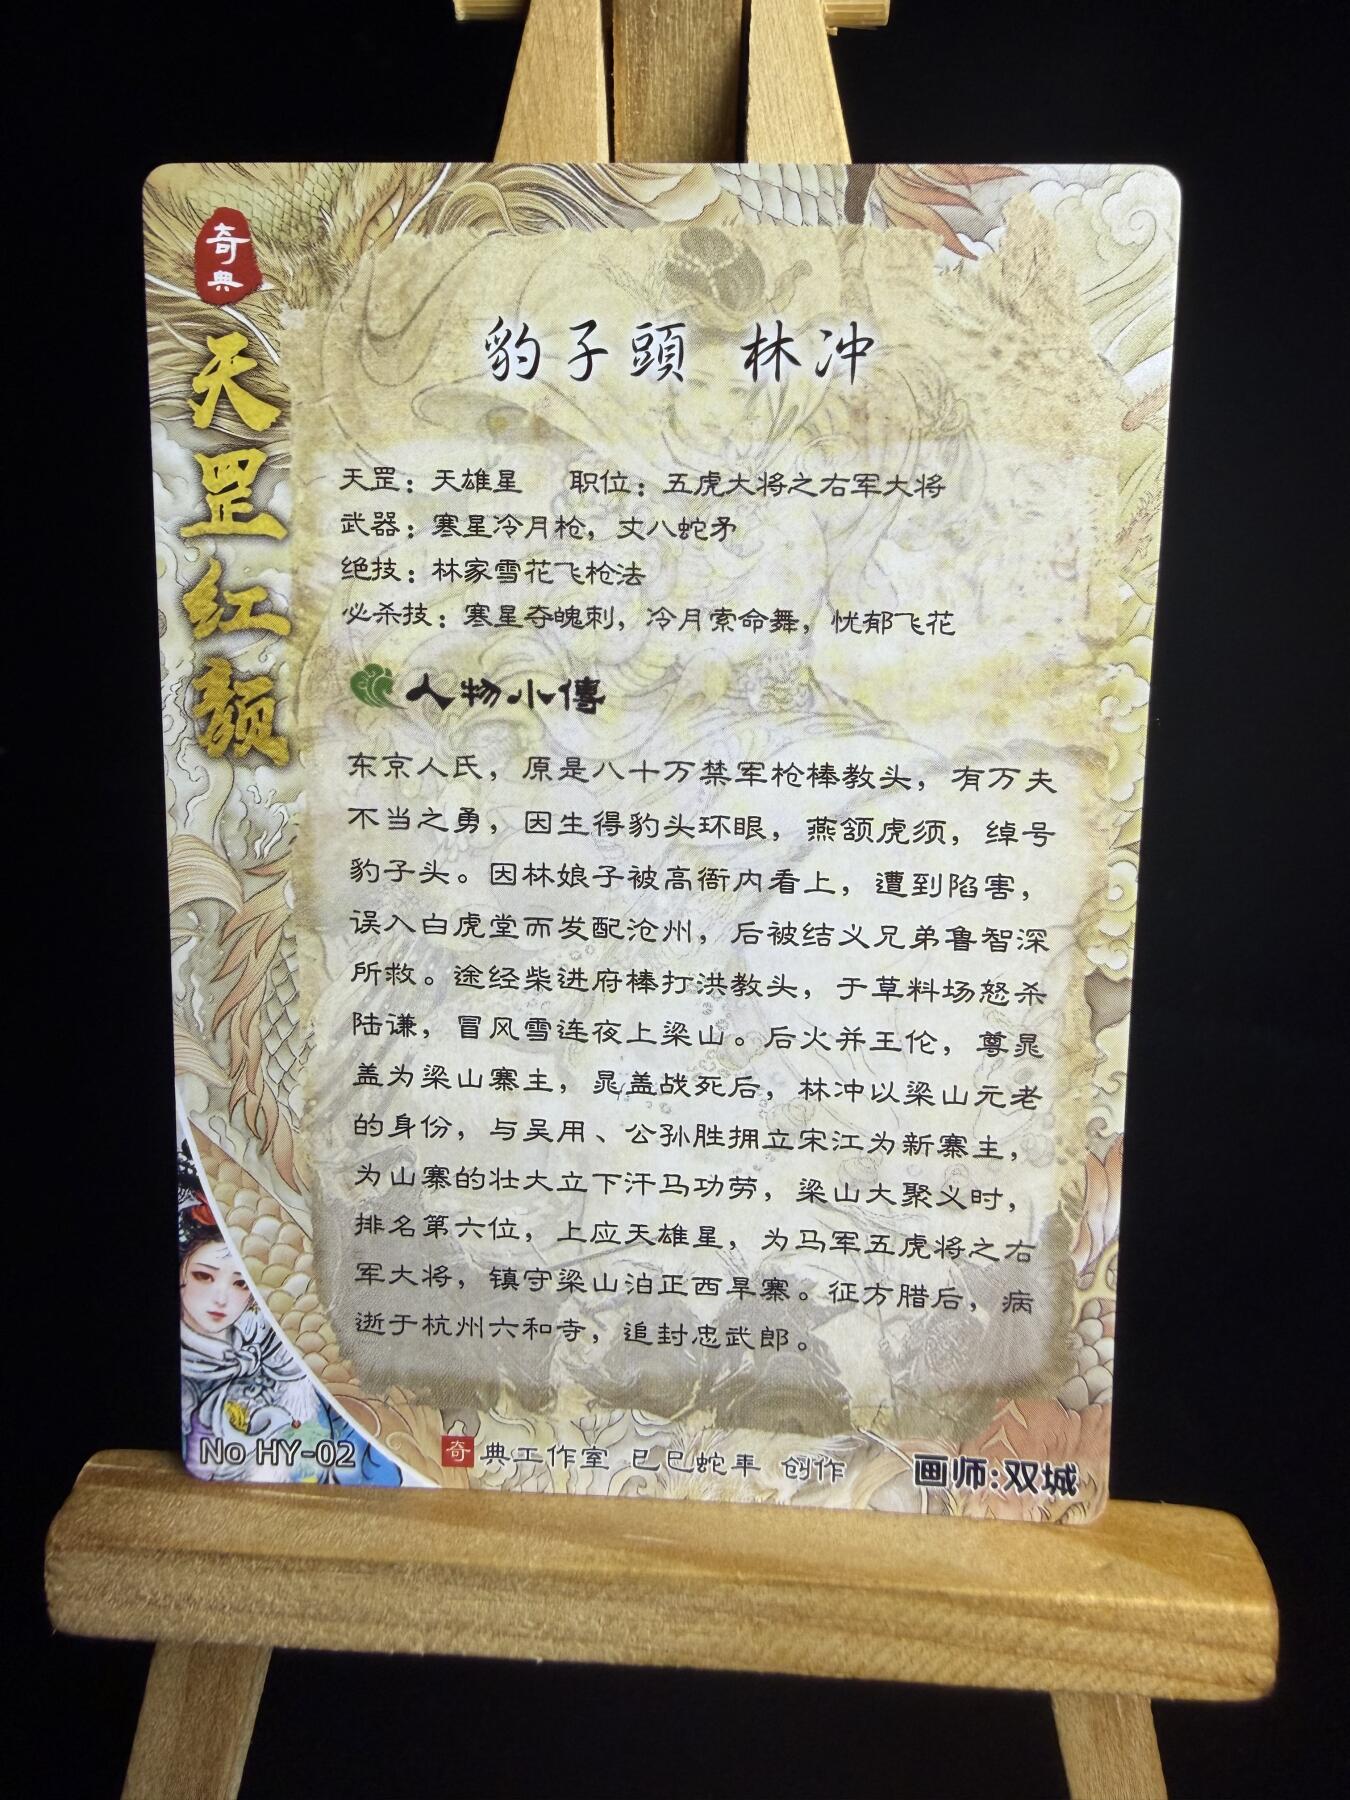 奇典
天罡红颜
豹子頭 林冲
天罡：天雄星 职位：五虎大将之右军大将
武器：寒星冷月枪，丈八蛇矛
绝技：林家雪花飞枪法
必杀技：寒星夺魄刺，冷月索命舞，忧郁飞花
人物小傳
东京人氏，原是八十万禁军枪棒教头，有万夫
不当之勇，因生得豹头环眼，燕颔虎须，绰号
豹子头。因林娘子被高衙内看上，遭到陷害，
误入白虎堂而发配沧州，后被结义兄弟鲁智深
所救。途经柴进府棒打洪教头，于草料场怒杀
陆谦，冒风雪连夜上梁山。后火并王伦，尊晁
盖为梁山寨主，晁盖战死后，林冲以梁山元老
的身份，与吴用、公孙胜拥立宋江为新寨主，
为山寨的壮大立下汗马功劳，梁山大聚义时，
排名第六位，上应天雄星，为马军五虎将之右
军大将，镇守梁山泊正西旱寨。征方腊后，病
逝于杭州六和寺，追封忠武郎。
No HY-02
奇典工作室 已巳蛇年 创作
画师:双城